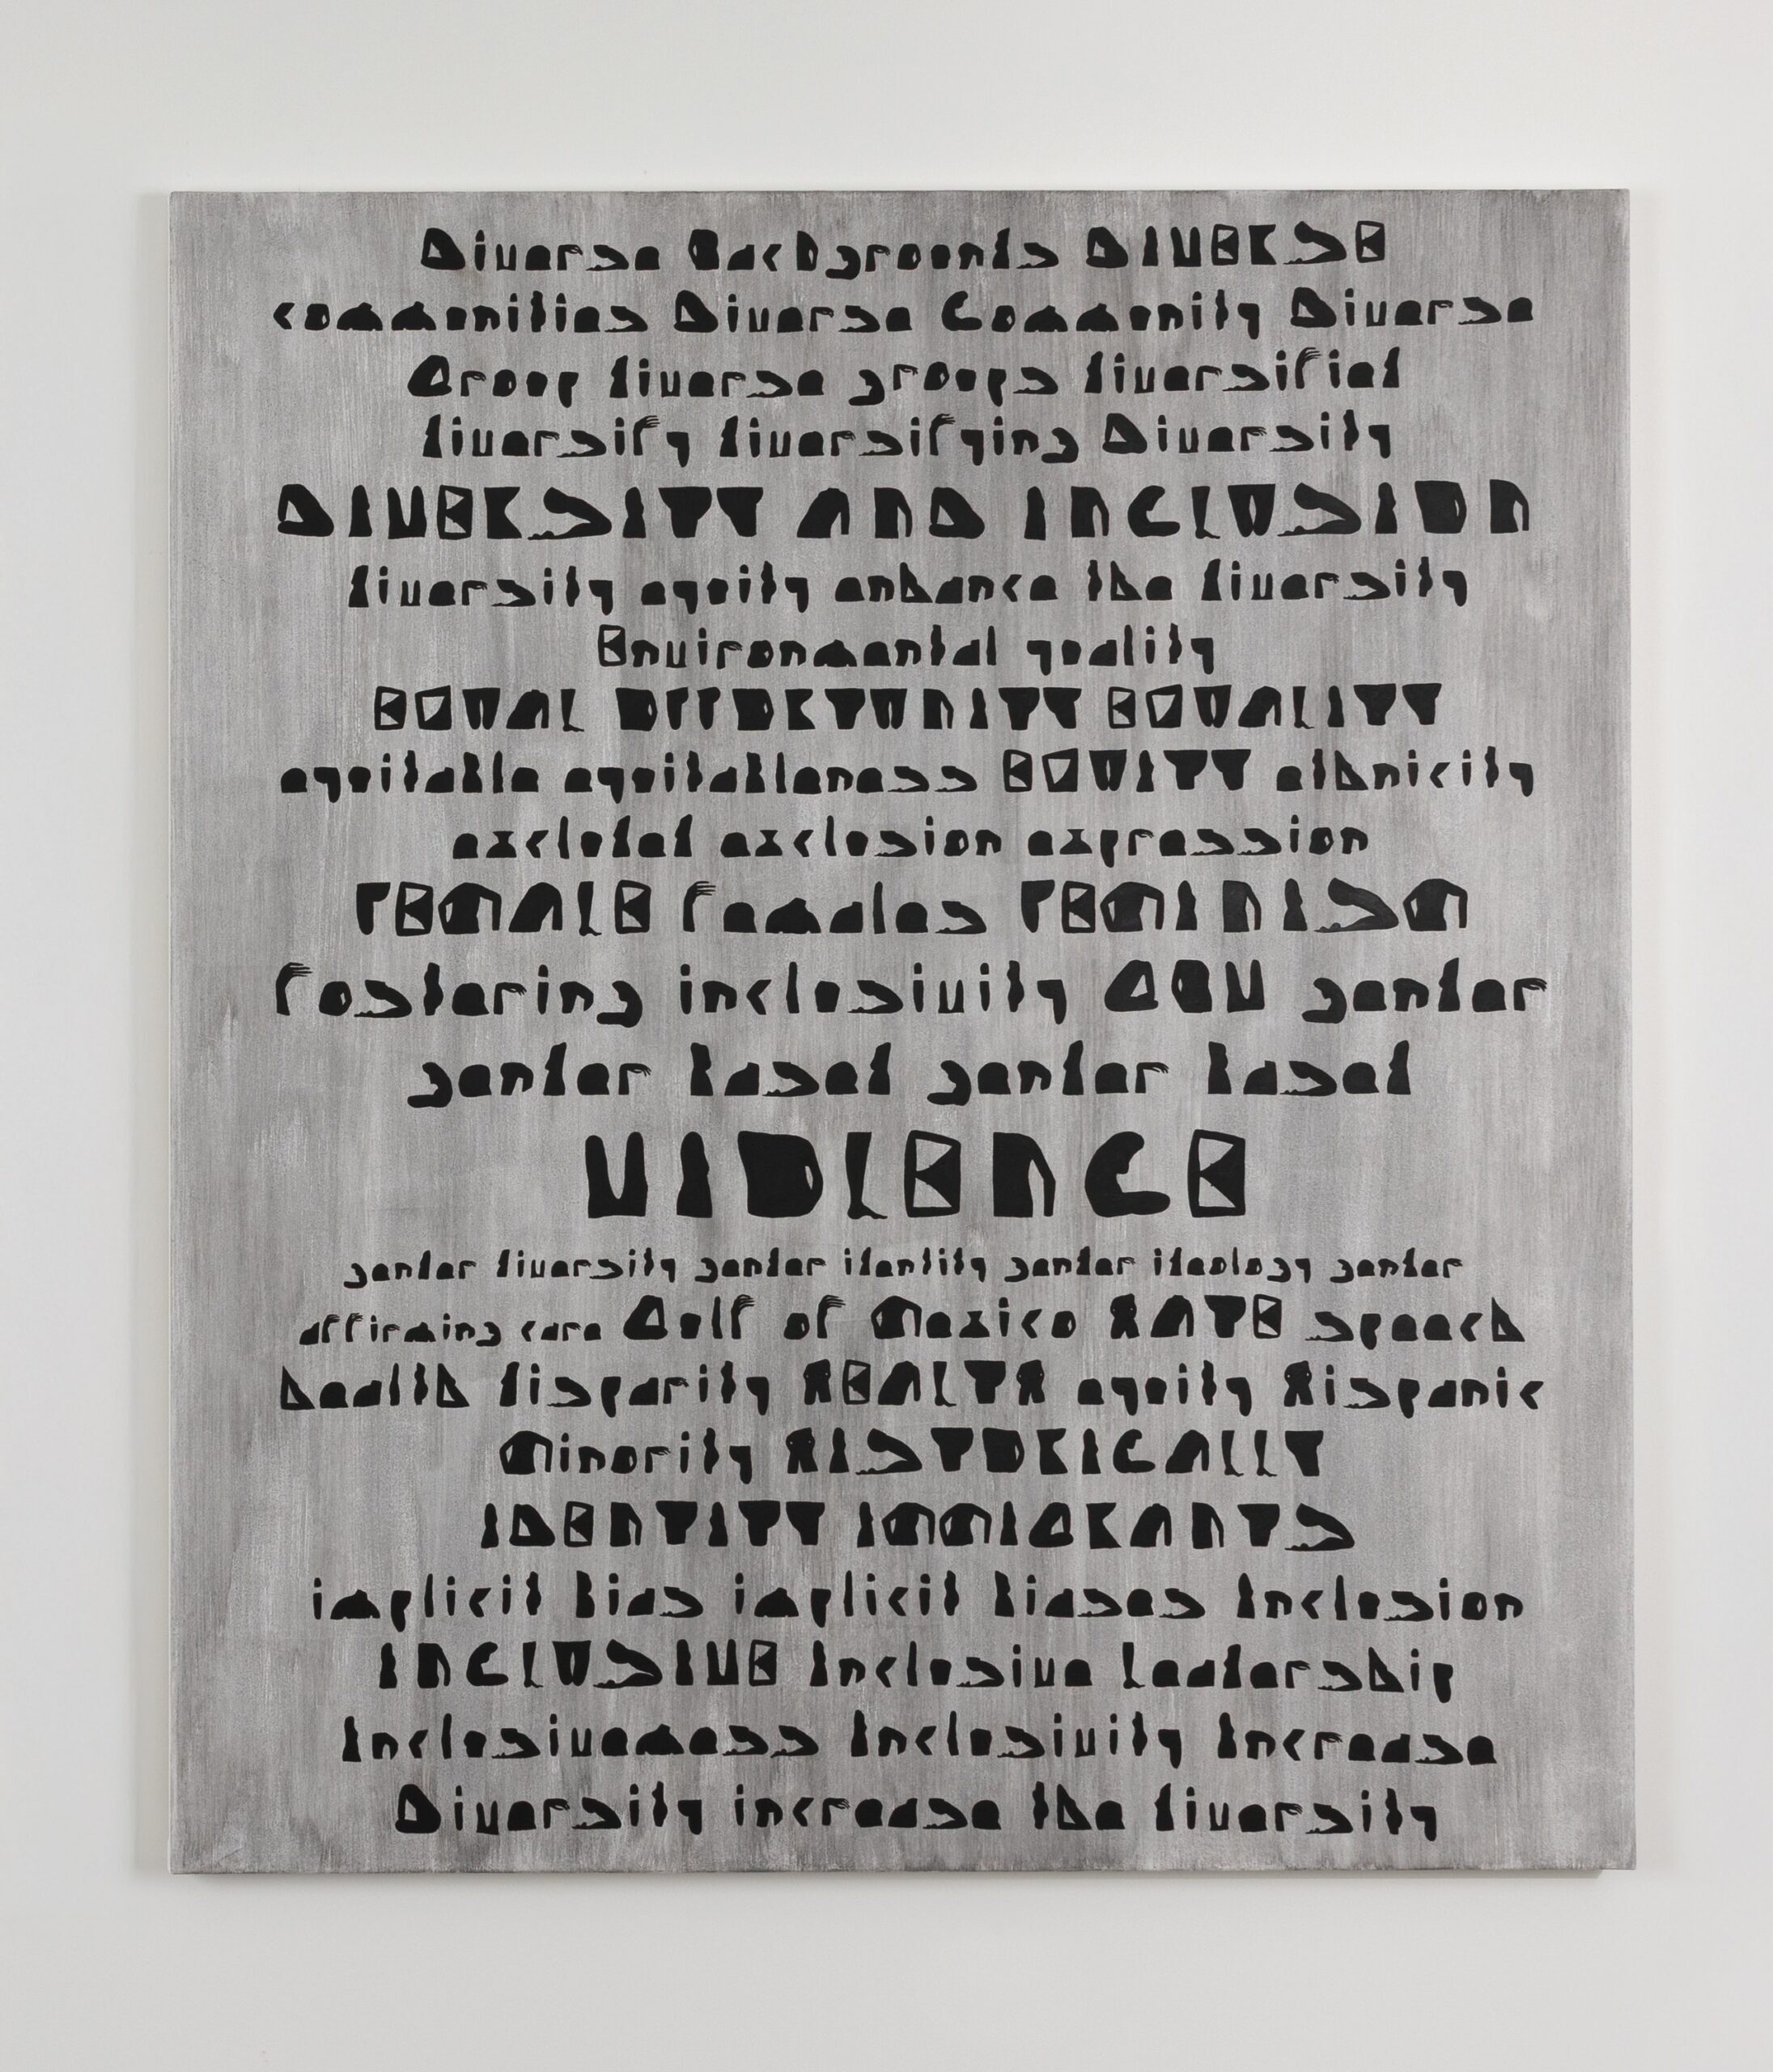 Diverse Backgrounds DIVERSE
communities Diverse Community Diverse
Group diverse groups diversified
diversify diversifying Diversity
DIVERSITY AND INCLUSION
diversity equity enhance the diversity
Environmental quality
EQUAL OPPORTUNITY EQUALITY
equitable equitableness EQUITY ethnicity
excluded exclusion expression
FEMALE females FEMINISM
fostering inclusivity GBV gender
gender based gender based
VIOLENCE
gender diversity gender identity gender ideology gender
affirming care Gulf of Mexico HATE speech
health disparity HEALTH equity Hispanic
Minority HISTORICALLY
IDENTITY IMMIGRANTS
implicit bias implicit biases Inclusion
INCLUSIVE Inclusive leadership
Inclusivemess Inclusivity Increase
Diversity increase the diversity